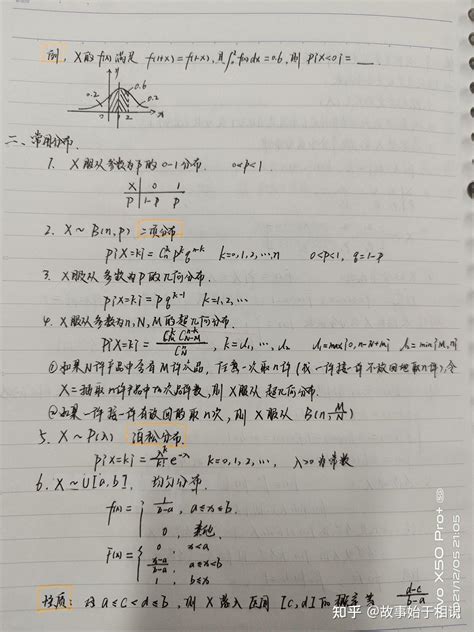 例, X的f(x)满足 f(1+x)=f(1-x), 且∫₀²f(x)dx=0.6, 则P{X<0}=__
y
0.2 0.6 0.2
0 1 2 x
二、常用分布.
1. X服从参数为p的0-1分布. 0<p<1.
X 0 1
P 1-p p
2. X~B(n,p) 二项分布
P{X=k}=Cₙᵏ pᵏ qⁿ⁻ᵏ k=0,1,2,…,n 0<p<1, q=1-p
3. X服从参数为p的几何分布.
P{X=k}=p qᵏ⁻¹ k=1,2,…
4. X服从参数为n,N,M的超几何分布.
①如果N件产品中含有M件次品, 任意一次取n件(或一件接一件不放回地取n件), 令
X=抽取n件产品中的次品件数, 则X服从超几何分布.
②如果一件接一件有放回的取n次, 则X服从B(n,M/N)
5. X~P(λ) 泊松分布.
P{X=k}=λᵏ/k! e^-λ k=0,1,2,…, λ>0为常数
6. X~U[a,b], 均匀分布.
f(x)={ 1/(b-a), a≤x≤b.
0, 其他.
F(x)={ 0, x<a
(x-a)/(b-a), a≤x<b
1, b≤x
性质: 对a≤c<d≤b, 则X落入区间[c,d]的概率为 (d-c)/(b-a)
知乎 @故事始于相识
vivo X50 Pro+
2021/12/05 21:05